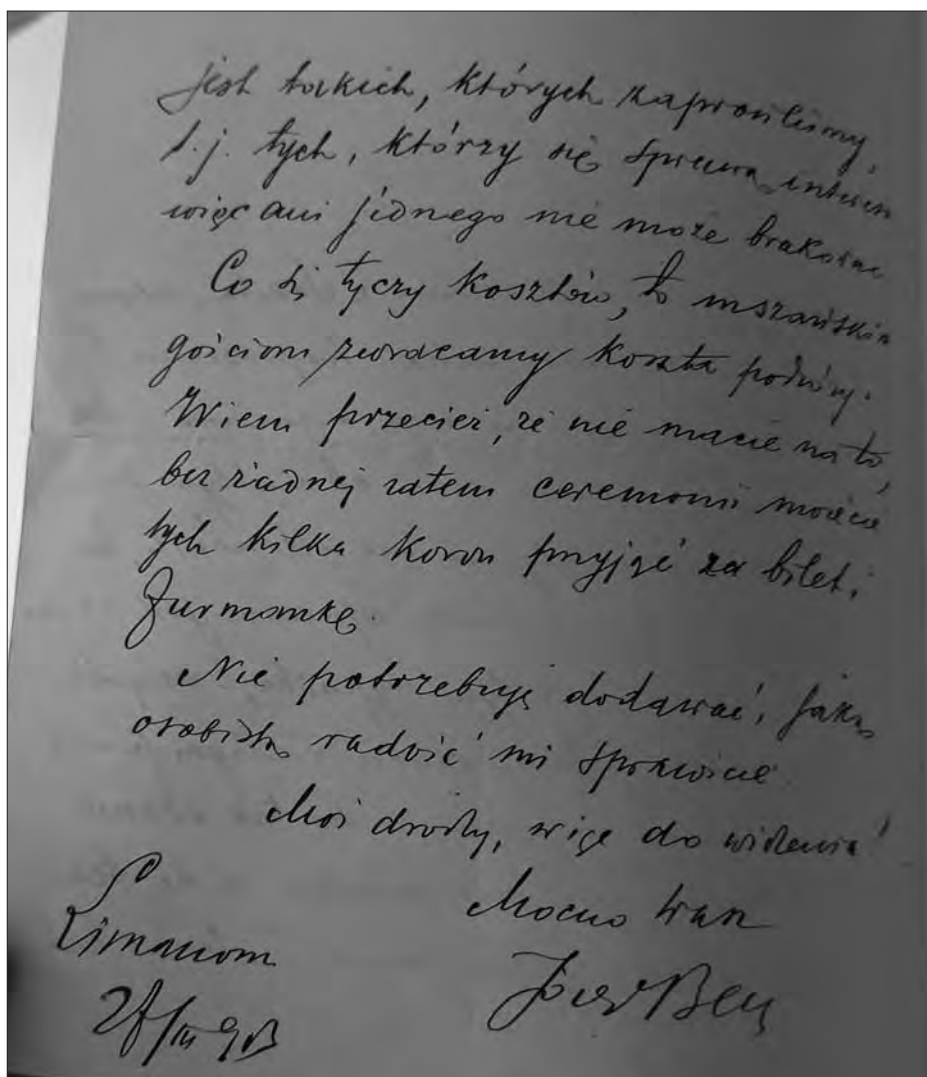 jest takich, których zaprosiliśmy,
t.j. tych, którzy się sprawą
więc ani jednego nie może brakować
Co się tyczy kosztów, to mszańskim
gościom zwracamy koszta podróży.
Wiem przecież, że nie macie na to,
bez żadnej zatem ceremonii możecie
tych kilka koron przyjąć za bilet i
furmankę.
Nie potrzebuję dodawać, jaką
osobistą radość mi sprawicie
Moi drodzy, więc do widzenia!
Mocno Wasz
Limanowa
Józef Beck